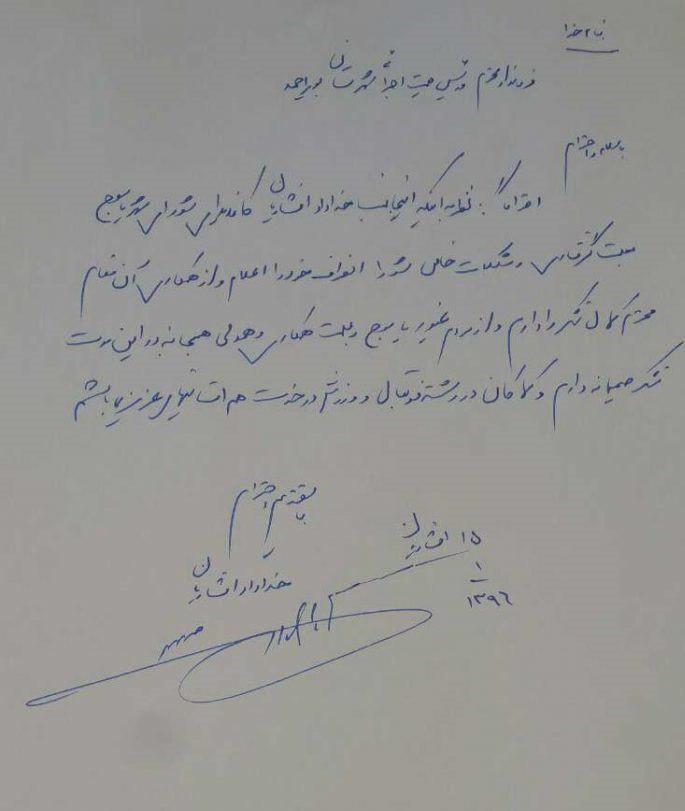 بنام خدا
فرماندار محترم و رئیس هیئت اجرائی شهرستان بویراحمد
با سلام و احترام
احتراماً: نظر به اینکه اینجانب خداداد افشاریان کاندیدای شورای شهر یاسوج
بعلت گرفتاری و مشکلات خاص شورا انصراف خود را اعلام و از همکاری آن مقام
محترم کمال تشکر را دارم و از مردم غیور یاسوج بعلت همکاری و همدلی همه جانبه در این مدت
تشکر صمیمانه دارم و کماکان در رشته فوتبال و ورزش در خدمت هم استانیهای عزیز میباشم
با تقدیم احترام
خداداد افشاریان
۱۵ افشاریان
۱
۱۳۹۶